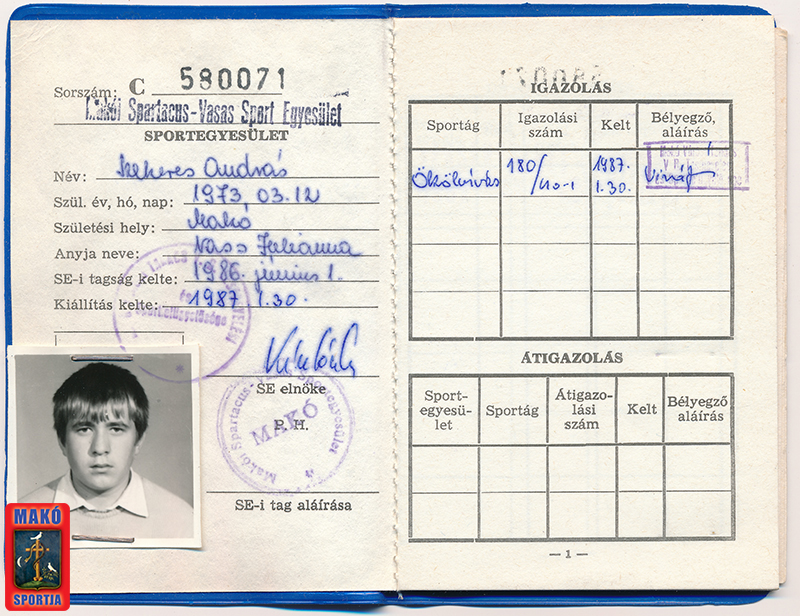 Sorszám: C 580071
Makói Spartacus-Vasas Sport Egyesület
SPORTEGYESÜLET
Név: Szekeres András
Szül. év, hó, nap: 1973, 03. 12
Születési hely: Makó
Anyja neve: Vass Julianna
SE-i tagság kelte: 1986. június 1.
Kiállítás kelte: 1987. 1.30.
SE elnöke
P. H.
Makói Spartacus-
MAKÓ
SE-i tag aláírása
MAKÓ
SPORTJA
580071
IGAZOLÁS
Sportág Igazolási szám Kelt Bélyegző, aláírás
Ökölvívás 180/ 1987. 1.30.
ÁTIGAZOLÁS
Sport-egyesü-let Sportág Átigazo-lási szám Kelt Bélyegző aláírás
— 1 —